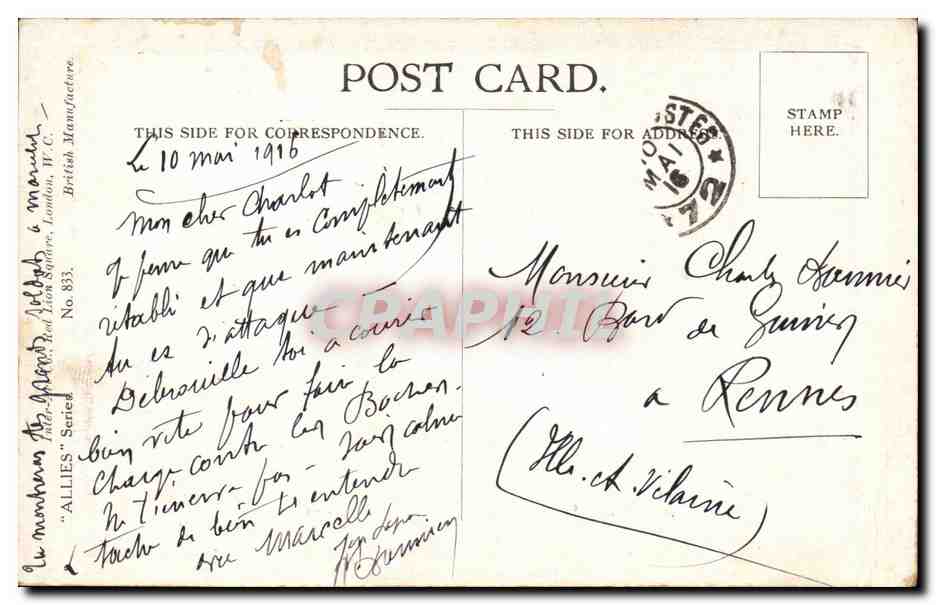 POST CARD.
THIS SIDE FOR CORRESPONDENCE.
THIS SIDE FOR ADDRESS.
STAMP
HERE.
Le 10 mai 1916
Mon cher Charlot
que tu es complètement
rétabli et que maintenant
tu es d'attaque
Débrouille toi a courir
bien vite pour fair la
charge contre les Boches.
Ne t'énerve pas - sois calme
tache de bien t'entendre
avec Marcelle
Tu montreras tes grands soldats a
"ALLIES" Series.
No. 833.
Red Lion Square, London, W.C.
British Manufacture.
MAI
16
72
Monsieur Charles
12 Bard de
a Rennes
(Ille et Vilaine)
CRAPHI